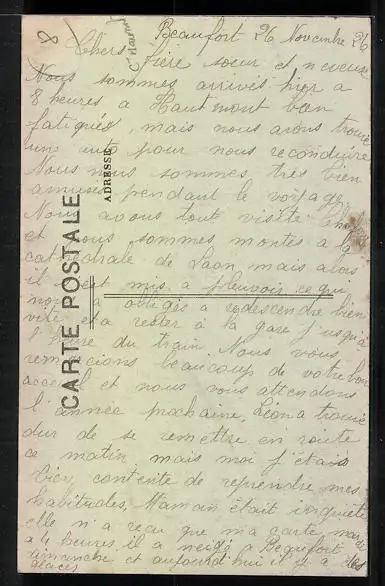 8
Beaufort 26 Novembre 26
Chers frère soeur et neveux
Nous sommes arrivés hier a
8 heures a Hautmont bien
fatigués, mais nous avons trouvé
une auto pour nous reconduire
Nous nous sommes très bien
amusés pendant le voyage
Nous avons tout visité
et nous sommes montés a la
cathédrale de Laon mais alors
il s'est mis a pleuvoir ce qui
nous a obligés a redescendre bien
vite et a rester à la gare jusqu'à
l'heure du train. Nous vous
remercions beaucoup de votre bon
accueil et nous vous attendons
l'année prochaine. Léona trouve
dur de se remettre en route
ce matin mais moi j'étais
contente de reprendre mes
habitudes, Maman était inquiète
elle n'a reçu que ma carte
a 4 heures. il a neigé a Beaufort
dimanche et aujourd'hui il y a des
glaces
CARTE POSTALE
ADRESSE